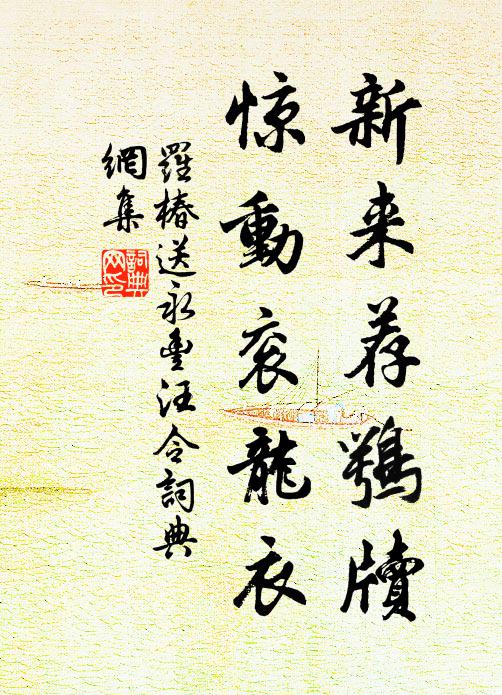 新来荐鶚牘
惊動衮龍衣
羅椿送永豊汪令詞典
網集
詞典
网印